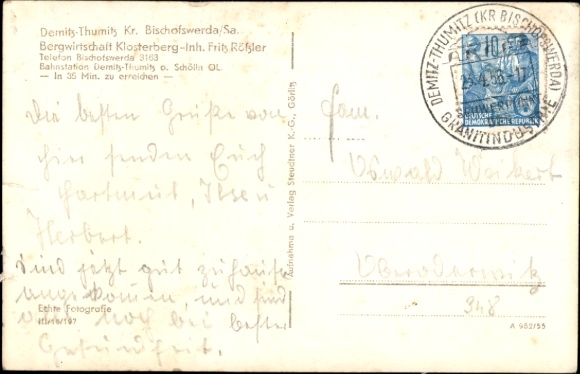 Demitz-Thumitz Kr. Bischofswerda/Sa.
Bergwirtschaft Klosterberg - Inh. Fritz Rößler
Telefon Bischofswerda 3163
Bahnstation Demitz-Thumitz o. Schölln OL.
— In 35 Min. zu erreichen —
Die besten Grüße von
hier senden Euch
Hartmut, Ilse u
Herbert.
Sind jetzt gut zuhause
angekommen, und sind
noch bei bester
Gesundheit.
Echte Fotografie
Aufnahme u. Verlag Steudtner K.-G., Görlitz
DEMITZ-THUMITZ (KR BISCHOFSWERDA)
GRANITINDUSTRIE
10
DEUTSCHE
DEMOKRATISCHE REPUBLIK
Fam.
Oswald Weikert
Oberoderwitz
348
A 962/55